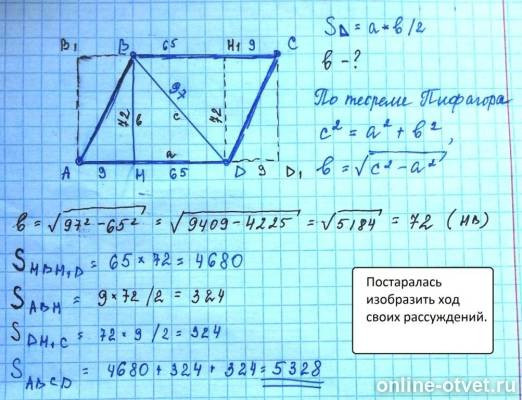 B₁ B 65 H₁ 9 C
97
72 в c 72
a
A 9 H 65 D 9 D₁
S△ = a × в / 2
в - ?
По теореме Пифагора
c² = a² + в² ,
в = √c² - a²
в = √97² - 65² = √9409 - 4225 = √5184 = 72 (HB)
S HBH₁D = 65 × 72 = 4680
S ABH = 9 × 72 / 2 = 324
S DH₁C = 72 × 9 / 2 = 324
S ABCD = 4680 + 324 + 324 = 5328
Постаралась
изобразить ход
своих рассуждений.
online-otvet.ru